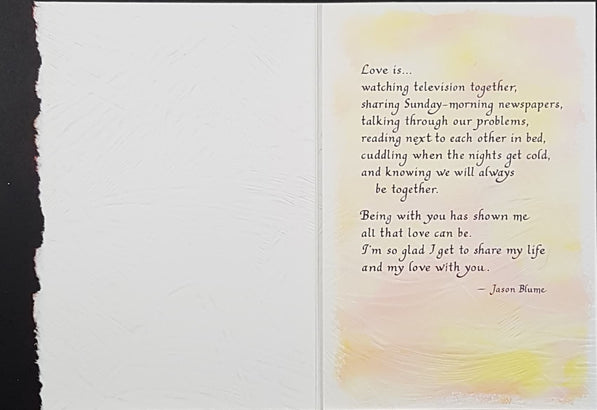 Love is...
watching television together,
sharing Sunday-morning newspapers,
talking through our problems,
reading next to each other in bed,
cuddling when the nights get cold,
and knowing we will always
be together.
Being with you has shown me
all that love can be.
I'm so glad I get to share my life
and my love with you.
— Jason Blume